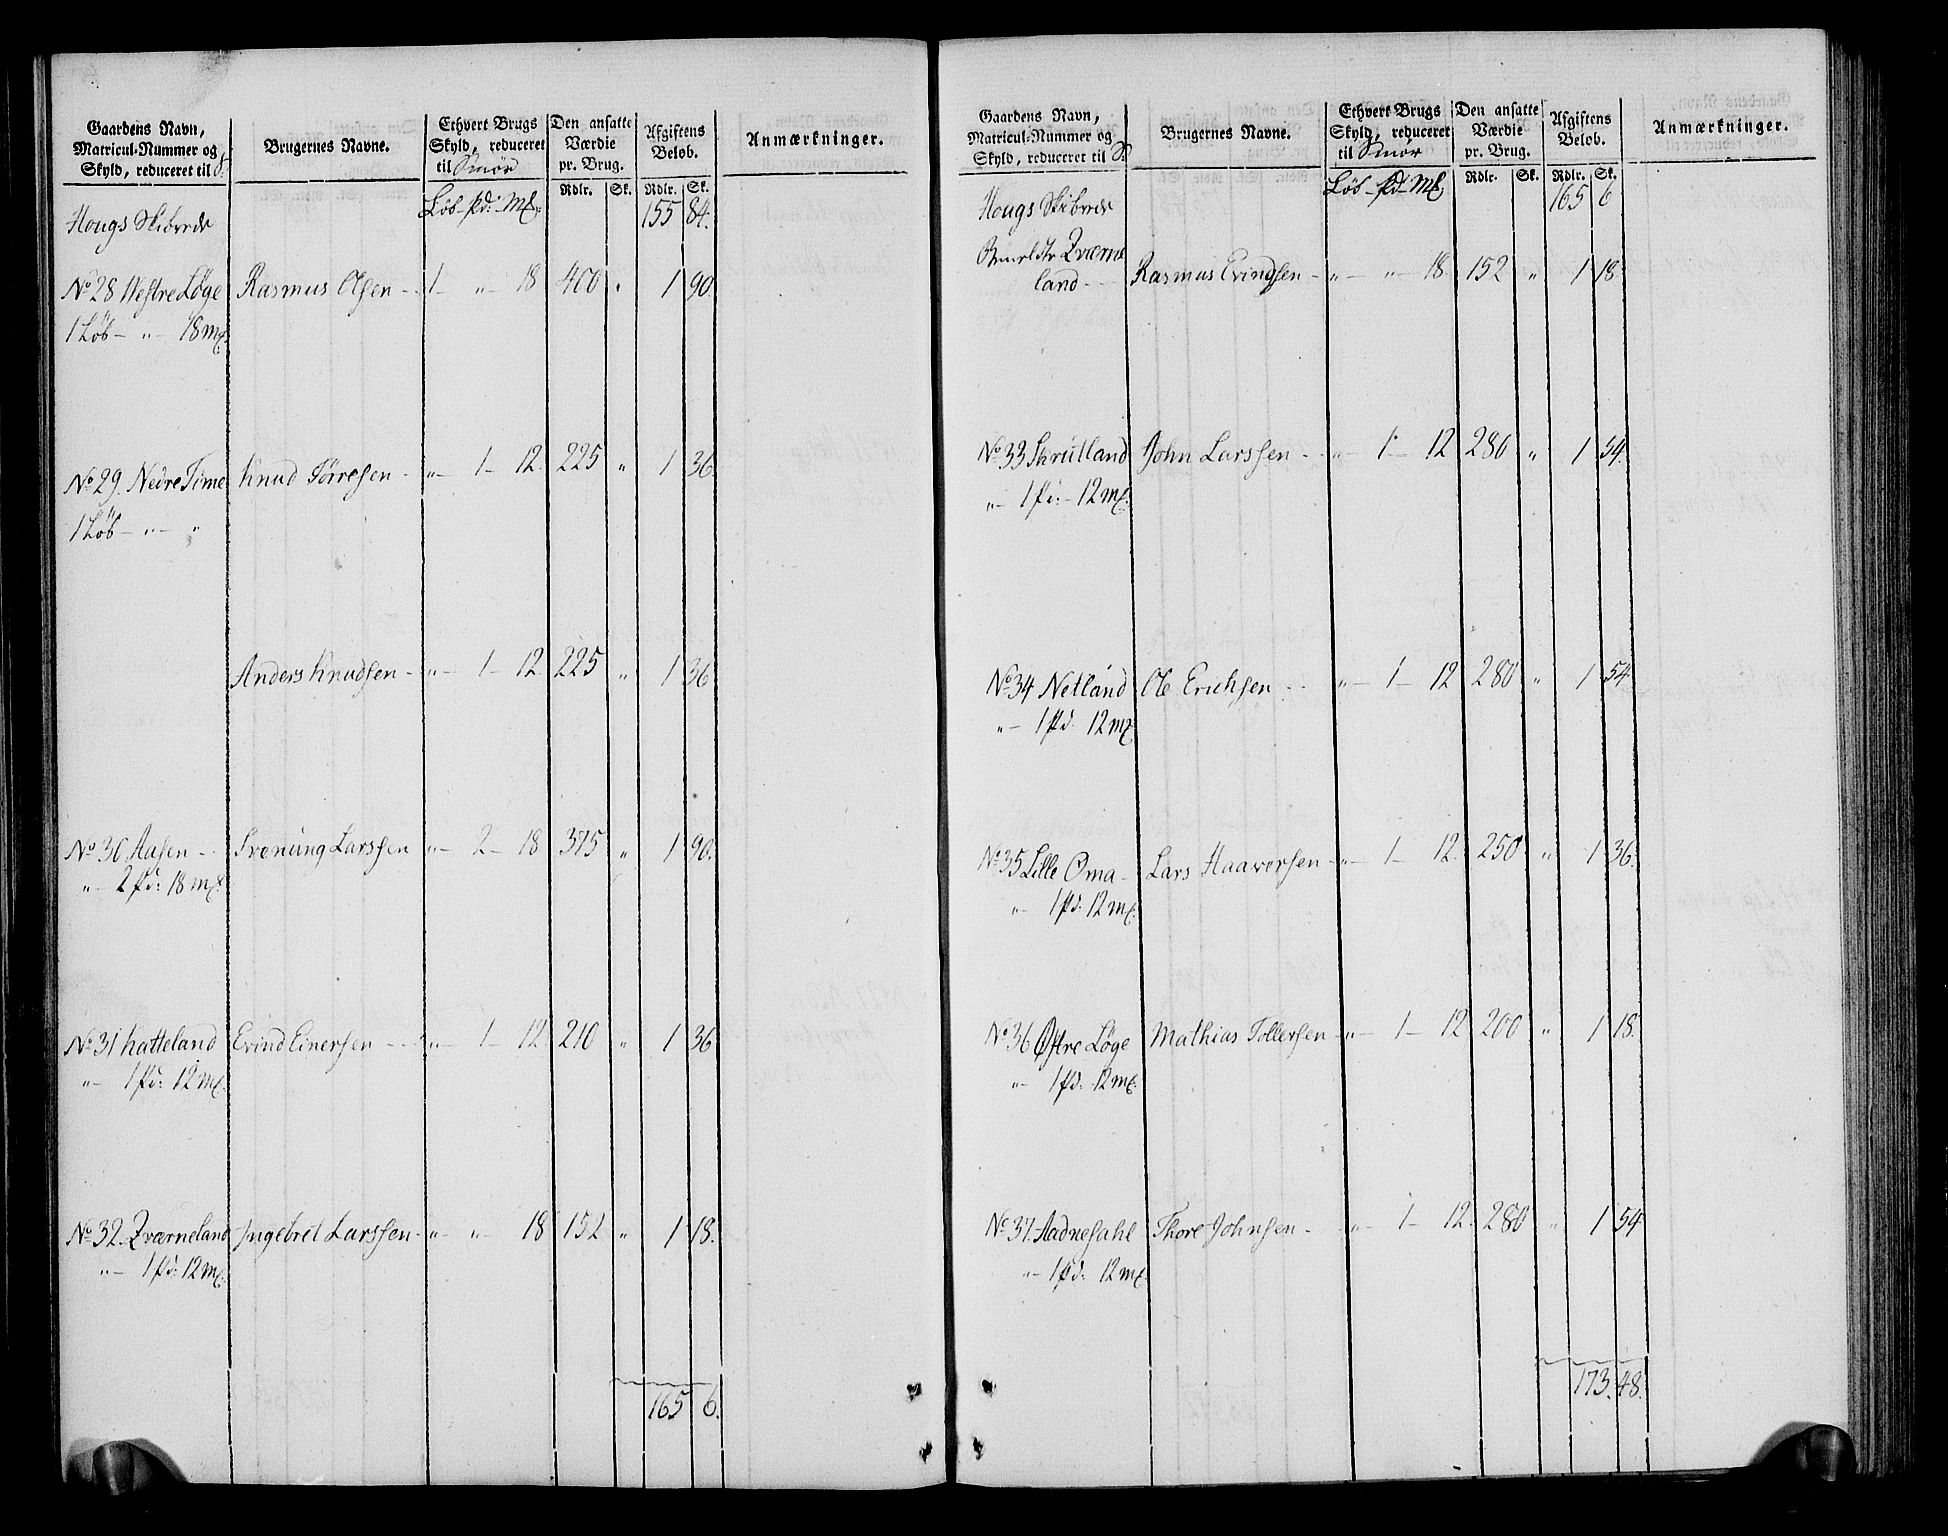 Gaardens Navn, Matricul-Nummer og Skyld, reduceret til S. | Brugernes Navne. | Ethvert Brugs Skyld, reduceret til Smør | Den ansatte Værdie pr. Brug. | Afgiftens Beløb. | Anmærkninger.
Rdlr. | Sk. | Rdlr. | Sk.
Hougs Skibrede | Löb - pd: - mk | 155 | 84.
No 28 Westre Løge | Rasmus Olsen - | 1 - " - 18 | 400 | " | 1 | 90.
1 Löb - " - 18 mk.
No 29. Nedre Time | Knud Törresen - | " - 1 - 12. | 225 | " | 1 | 36.
1 Löb - " - "
Anders Knudsen - | " - 1 - 12. | 225 | " | 1 | 36
No 30 Aasen - | Svenung Larssen | " - 2 - 18 | 375 | " | 1 | 90.
" - 2 pd: 18 mk.
No 31 Hatteland | Evind Einersen - | " - 1 - 12 | 210 | " | 1 | 36
" - 1 pd: 12 mk.
No 32. Qværneland | Ingebret Larssen - | " - " - 18 | 152 | " | 1 | 18.
" - 1 pd: 12 mk.
165 | 6.
Gaardens Navn, Matricul-Nummer og Skyld, reduceret til S. | Brugernes Navne. | Ethvert Brugs Skyld, reduceret til Smør | Den ansatte Værdie pr. Brug. | Afgiftens Beløb. | Anmærkninger.
Rdlr. | Sk. | Rdlr. | Sk.
Hougs Skibrede | Löb - pd - mk | 165 | 6
Qværne
land - | Rasmus Evindsen - | " - " - 18. | 152 | " | 1 | 18
No 33 Skrutland | John Larssen - | " - 1 - 12 | 280 | " | 1 | 54.
" - 1 pd: - 12 mk.
No 34 Netland | Ole Erichsen - | " - 1 - 12 | 280 | " | 1 | 54.
" - 1 pd. 12 mk
No 35 Lille Oma - | Lars Haaversen - | " - 1 - 12. | 250 | " | 1 | 36.
" - 1 pd. 12 mk.
No 36 Østre Løge | Mathias Tollersen - | " - 1 - 12 | 200 | " | 1 | 18.
" - 1 pd. 12 mk.
No 37. Aadnesahl | Thore Johnsen - | " - 1 - 12. | 280 | " | 1 | 54
" - 1 pd. 12 mk.
173. | 48.